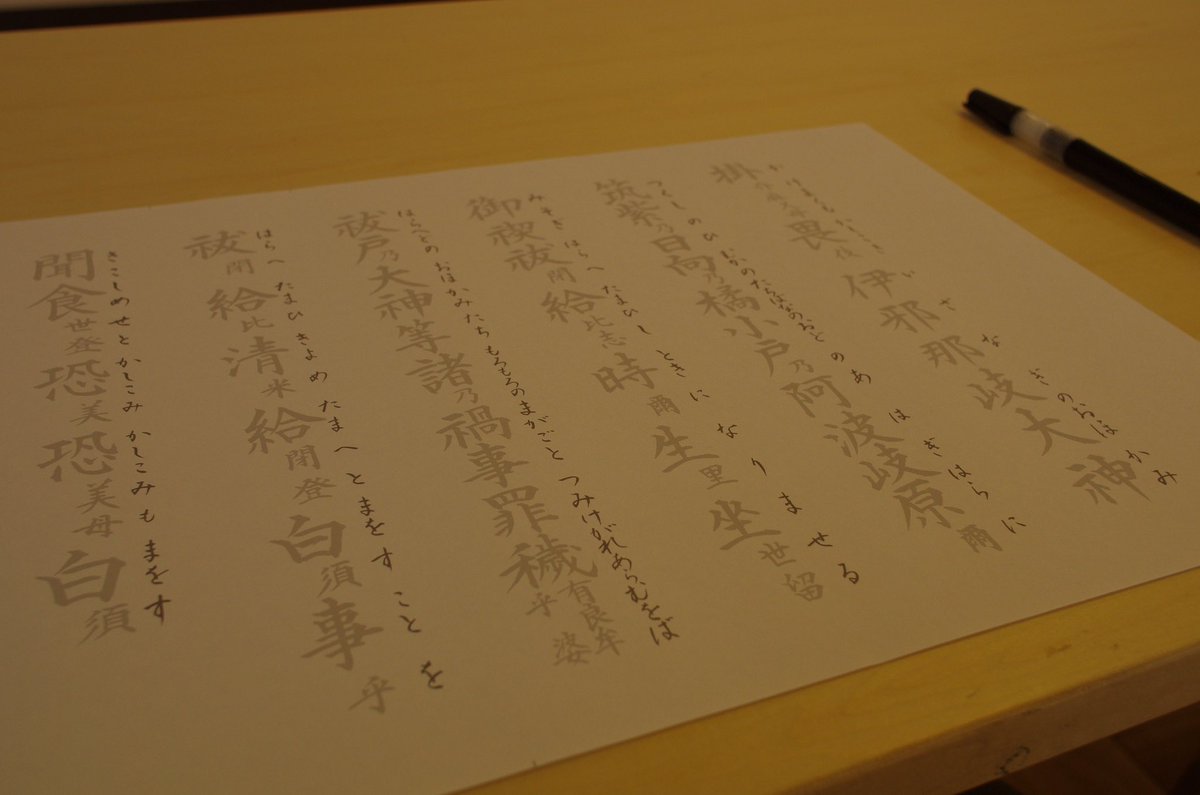 かけまくもかしこき いざなぎのおほかみ
掛畏伎 伊邪那岐大神
つくしのひむかのたちばなのおどのあはぎはらに
筑紫乃日向乃橘小戸乃阿波岐原爾
みそぎ はらへ たまひし ときに なりませる
御禊祓閉給比志時爾生里坐世留
はらへどの おほかみたち もろもろのまがごと つみけがれあらむをば
祓戸乃大神等諸乃禍事罪穢有良牟乎婆
はらへ たまひ きよめ たまへと まをす ことを
祓閉給比清米給閉登白須事乎
きこしめせと かしこみ かしこみも まをす
聞食世登恐美恐美母白須